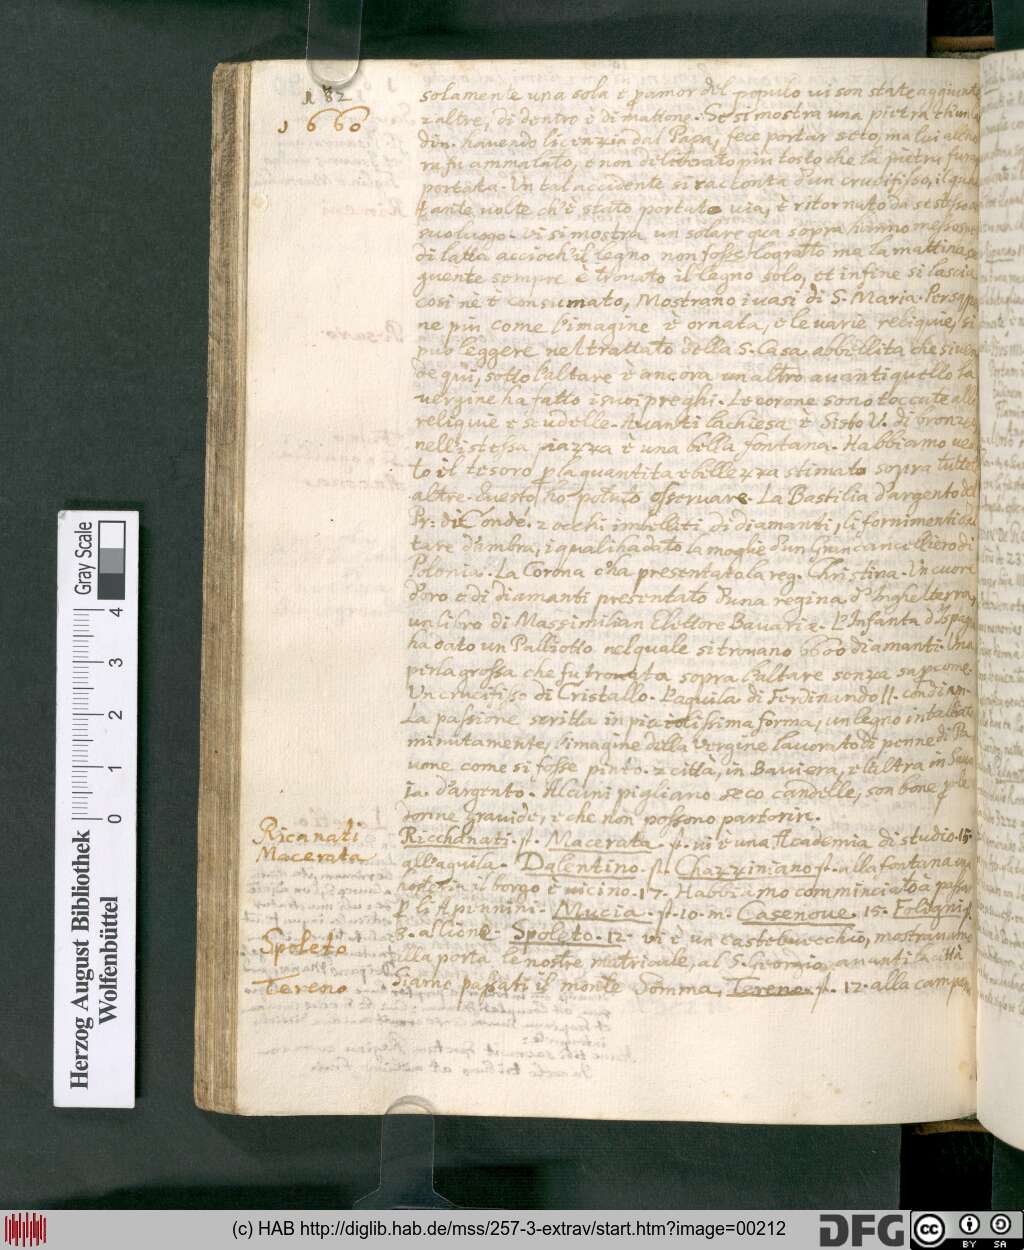 182
1660
solamente una sola e p amor del populo vi son state aggiunte
2 altre, di dentro è di mattone. Se si mostra una pietra ch'un
din. havendo licenzia dal Papa, fece portar seco, ma lui all'ho
ra fu ammalato, e non deliberato piu tosto che la pietra fura
portata. Un tal accidente si racconta d'un crucifisso, il qual
tante volte ch'è stato portato via, è ritornato da se stesso a
suo luogo. Vi si mostra un solare qua sopra hanno messo
di latta accioch'il legno non fosse grattato ma la mattina se
guente sempre è trovato il legno solo, et infine si lascia
cosi ne è consumato, Mostrano i vasi di S. Maria. Per sape
ne piu come l'imagine è ornata, e le varie reliquie, si
può leggere nel trattato della S. Casa abbellita che si ven
de qui, sotto l'altare è ancora un altro avanti quello la
vergine ha fatto i suoi preghi. Le corone sono toccate alle
reliquie e scudelle. Avanti la chiesa è Sisto V. di bronze,
nell'istessa piazza è una bella fontana. Habbiamo ve
to il tesoro p la quantita e bellezza stimato sopra tutte l'
altre. Questo ho potuto osservare. La Bastilia d'argento del
Pr: di Condé. 2 occhi imbelliti di diamanti, li fornimenti d'al
tare d'ambra, i quali ha dato la moglie d'un Gran cancelliero di
Polonia. La Corona c'ha presentato la reg. Christina. Un cuore
d'oro e di diamanti presentato d'una regina d'Inghelterra,
un libro di Massimilian Elettore Bavariæ. L'Infanta d'Ispag
ha dato un Palliotto nel quale si trovano 6600 diamanti. Una
perla grossa che fu trovata sopra l'altare senza sap come.
Un crucifisso di Cristallo. L'aquila di Ferdinando II. con diam.
La passione scritta in piccolissima forma, un legno intagliat
minutamente, l'imagine della Vergine lavorato di penne di Pa
vone come si fosse pinto. 2 città, in Baviera, e l'altra in Savo
ia. d'argento. Alcuni pigliano seco candelle, son bone p le
donne gravide, e che non possono partorir.
Ricanati
Ricchanati. p. Macerata. p. vi è una Academia di studio. 15.
Macerata
all'aquila. Dalentino. p. Chazzin:ano p. alla fontana un
hosteria il borgo è vicino. 17. Habbiamo comminciato à passa
p li Apinnini. Mucia. p. 10. m. Casenove. 15. Foligni p.
3. al lione. Spoleto. 12. vi è un castel vecchio, mostran una
Spoleto
alla porta le nostre matricule, al S. Georgio avanti la città
Siamo passati il monte Somma, Tereno. p. 12. alla campa
Tereno
Gray Scale
0 1 2 3 4
Herzog August Bibliothek
Wolfenbüttel
(c) HAB http://diglib.hab.de/mss/257-3-extrav/start.htm?image=00212
DFG
CC BY SA